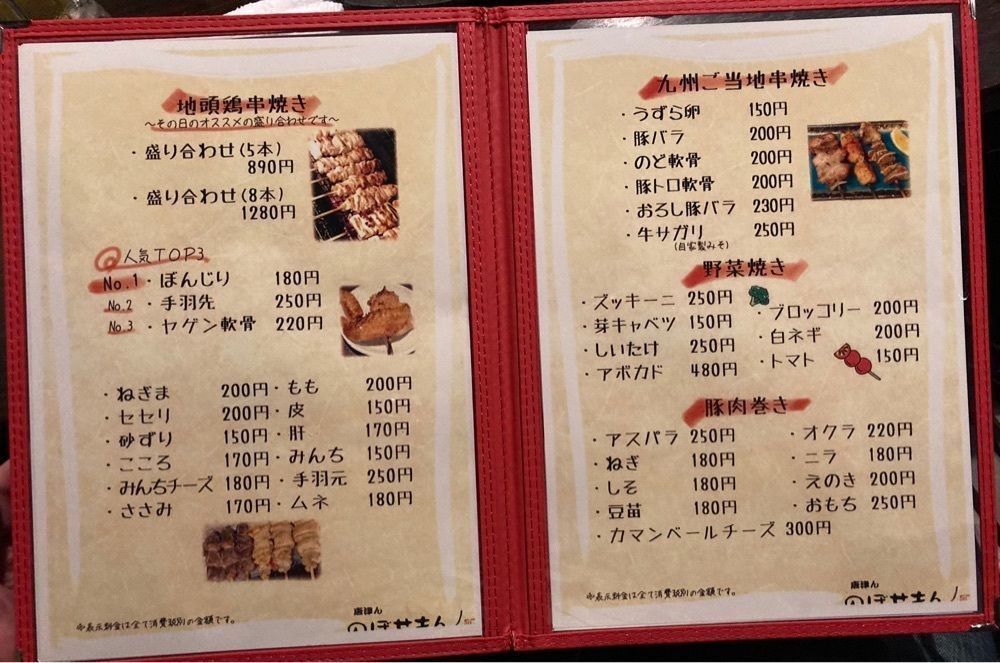 地頭鶏串焼き
～その日のオススメの盛り合わせです～
・盛り合わせ(5本)
890円
・盛り合わせ(8本)
1280円
人気TOP3
No.1・ぼんじり 180円
No.2・手羽先 250円
No.3・ヤゲン軟骨 220円
・ねぎま 200円
・セセリ 200円
・砂ずり 150円
・こころ 170円
・みんちチーズ 180円
・ささみ 170円
・もも 200円
・皮 150円
・肝 170円
・みんち 150円
・手羽元 250円
・ムネ 180円
※表示料金は全て消費税別の金額です。
九州ご当地串焼き
・うずら卵 150円
・豚バラ 200円
・のど軟骨 200円
・豚トロ軟骨 200円
・おろし豚バラ 230円
・牛サガリ 250円
(自家製みそ)
野菜焼き
・ズッキーニ 250円
・芽キャベツ 150円
・しいたけ 250円
・アボカド 480円
・ブロッコリー 200円
・白ネギ 200円
・トマト 150円
豚肉巻き
・アスパラ 250円
・ねぎ 180円
・しそ 180円
・豆苗 180円
・カマンベールチーズ 300円
・オクラ 220円
・ニラ 180円
・えのき 200円
・おもち 250円
※表示料金は全て消費税別の金額です。